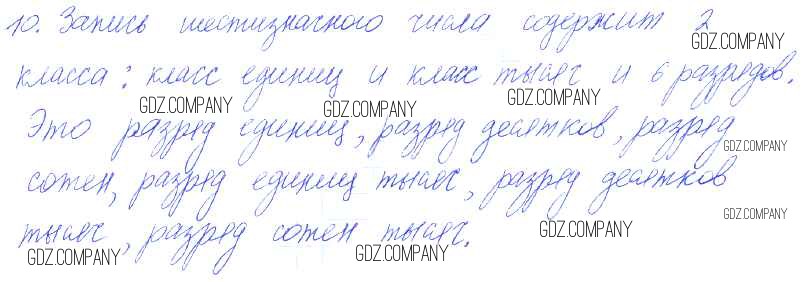 10. Запись шестизначного числа содержит 2
GDZ.COMPANY
класса: класс единиц и класс тысяч и 6 разрядов.
GDZ.COMPANY GDZ.COMPANY GDZ.COMPANY
Это разряд единиц, разряд десятков, разряд
GDZ.COMPANY
сотен, разряд единиц тысяч, разряд десятков
GDZ.COMPANY
тысяч, разряд сотен тысяч.
GDZ.COMPANY GDZ.COMPANY GDZ.COMPANY